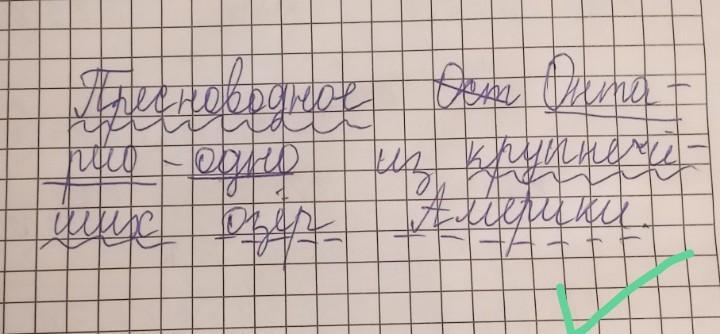 Пресноводное Онта-
рио - одно из крупней-
ших озёр Америки.